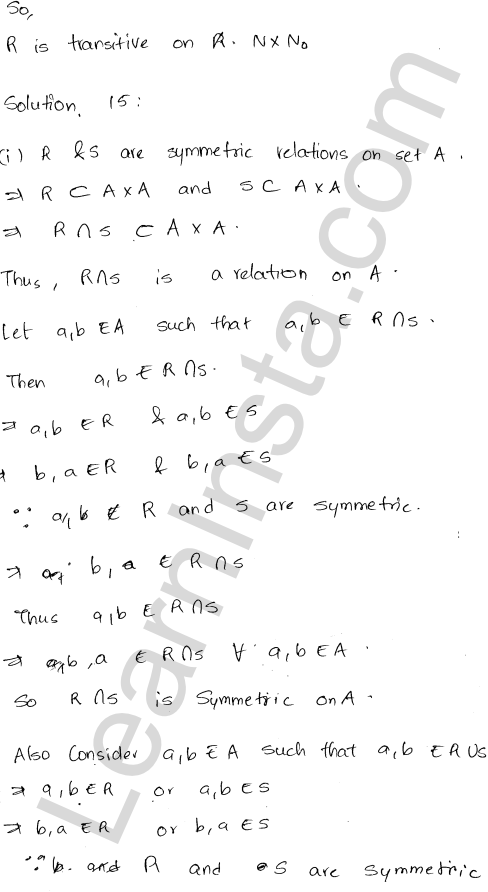 So,
R is transitive on N×N.
Solution. 15:
(i) R & S are symmetric relations on set A.
⇒ R ⊂ A×A and S ⊂ A×A.
⇒ R∩S ⊂ A×A.
Thus, R∩S is a relation on A.
Let a,b ∈A such that a,b ∈ R∩S.
Then a,b ∈ R∩S.
⇒ a,b ∈R & a,b ∈S
⇒ b,a∈R & b,a ∈S
∵ R and S are symmetric.
⇒ b,a ∈ R∩S
Thus a,b ∈ R∩S
⇒ b,a ∈ R∩S ∀ a,b∈A.
So R∩S is Symmetric on A.
Also Consider a,b∈A such that a,b ∈R∪S
⇒ a,b∈R or a,b∈S
⇒ b,a∈R or b,a∈S
∵ R and S are symmetric
LearnInsta.com